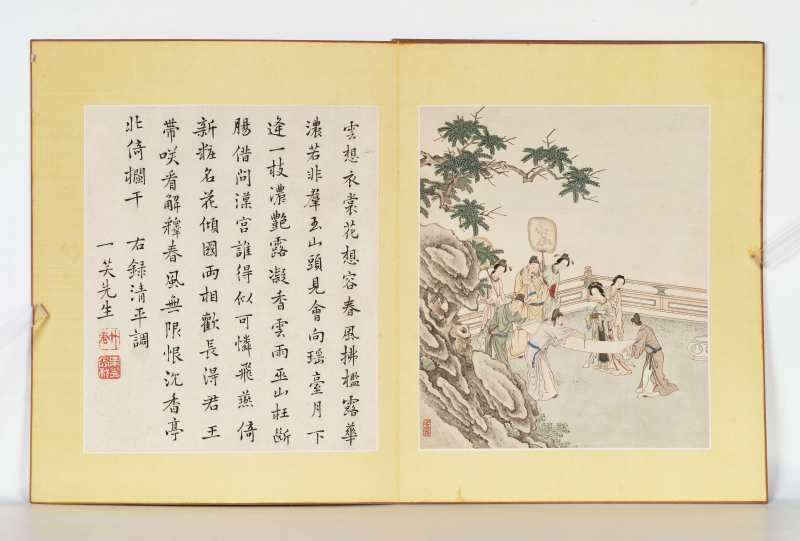 雲想衣裳花想容春風拂檻露華
濃若非羣玉山頭見會向瑶臺月下
逢一枝濃艷露凝香雲雨巫山枉斷
腸借問漢宮誰得似可憐飛燕倚
新粧名花傾國兩相歡長得君王
帶咲看解釋春風無限恨沉香亭
北倚欄干 右録清平調
一笑先生